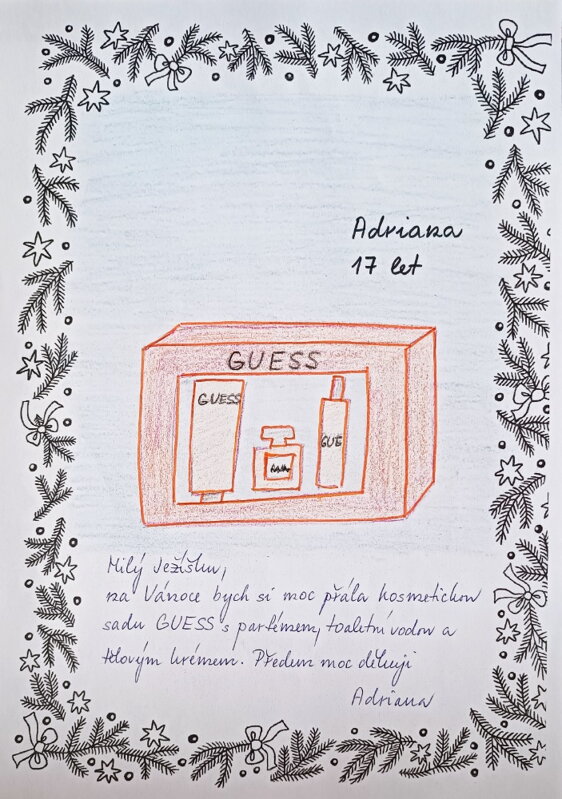 Adriana
17 let
GUESS
GUESS
GUE
Milý Ježíšku,
na Vánoce bych si moc přála kosmetickou
sadu GUESS s parfémem, toaletní vodou a
tělovým krémem. Předem moc děkuji
Adriana